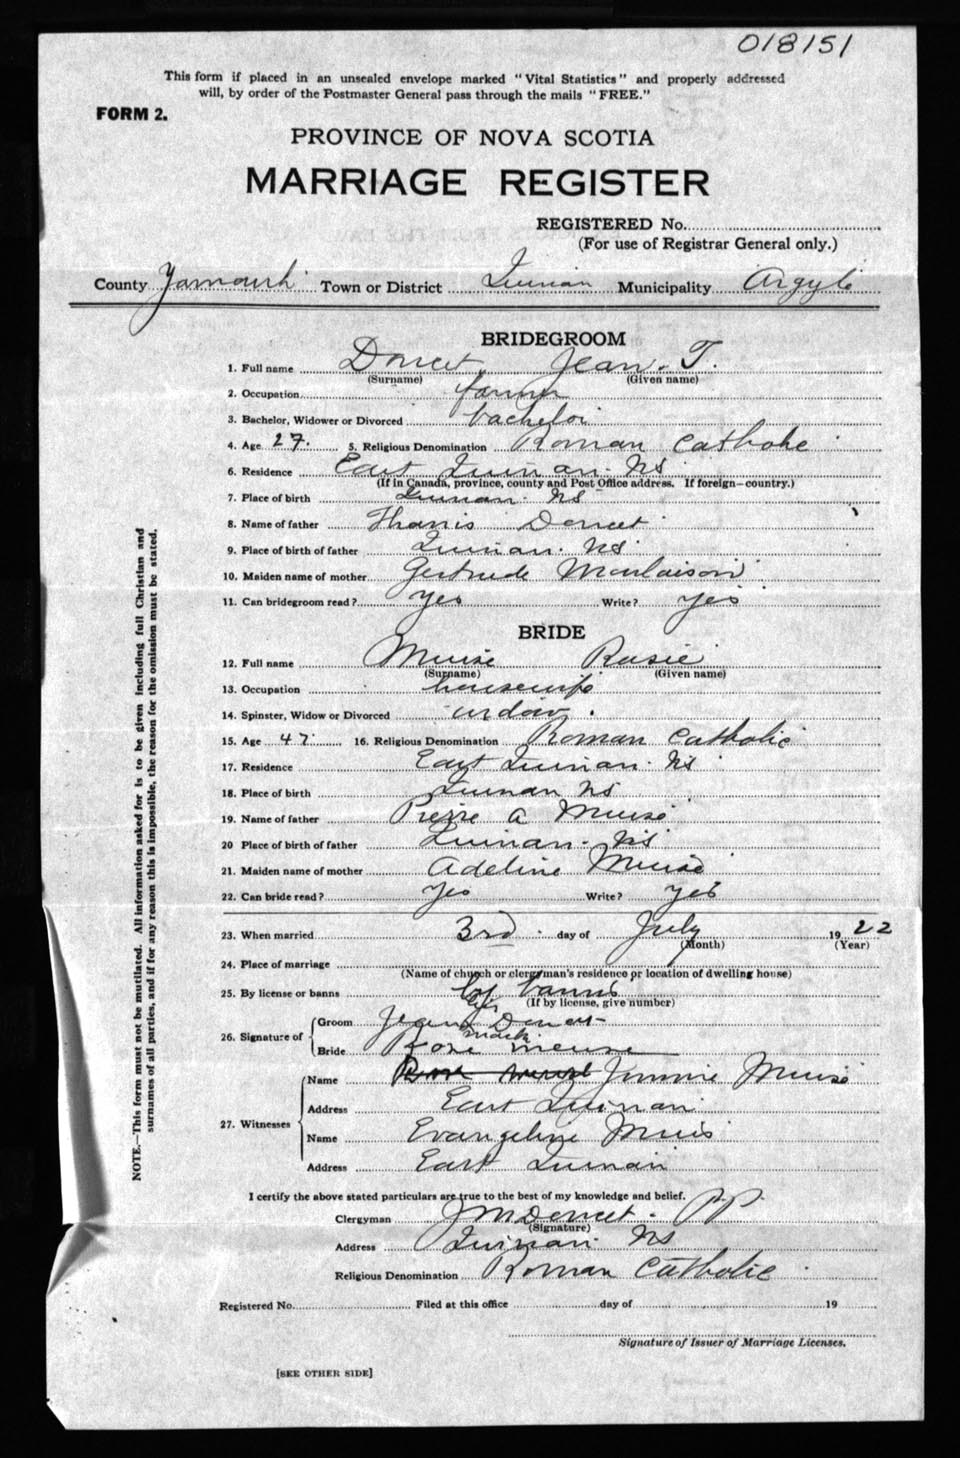 018151
This form if placed in an unsealed envelope marked "Vital Statistics" and properly addressed
will, by order of the Postmaster General pass through the mails "FREE."
FORM 2.
PROVINCE OF NOVA SCOTIA
MARRIAGE REGISTER
REGISTERED No.
(For use of Registrar General only.)
County Yarmouth Town or District Quinan Municipality Argyle
BRIDEGROOM
1. Full name Doucet Jean T.
(Surname) (Given name)
2. Occupation farmer
3. Bachelor, Widower or Divorced bachelor
4. Age 27. 5. Religious Denomination Roman Catholic
6. Residence East Quinan. NS
(If in Canada, province, county and Post Office address. If foreign—country.)
7. Place of birth Quinan. NS
8. Name of father Doucet
9. Place of birth of father Quinan. NS
10. Maiden name of mother Gertrude Moulaison
11. Can bridegroom read? yes Write? yes
BRIDE
12. Full name Muise Rosie
(Surname) (Given name)
13. Occupation housewife
14. Spinster, Widow or Divorced widow.
15. Age 47 16. Religious Denomination Roman Catholic
17. Residence East Quinan. NS
18. Place of birth Quinan NS
19. Name of father Pierre A Muise
20 Place of birth of father Quinan. NS
21. Maiden name of mother Adeline Muise
22. Can bride read? yes Write? yes
23. When married 3rd day of July 1922
(Month) (Year)
24. Place of marriage
(Name of church or clergyman's residence or location of dwelling house)
25. By license or banns by banns
(If by license, give number)
26. Signature of Groom Jean Doucet
her
mark
Bride Rose meuse
27. Witnesses Name Jimmie Muise
Address East Quinan
Name Evangeline Muis
Address East Quinan
I certify the above stated particulars are true to the best of my knowledge and belief.
Clergyman J M Doucet. P.P.
(Signature)
Address Quinan NS
Religious Denomination Roman Catholic
Registered No. Filed at this office day of 19
Signature of Issuer of Marriage Licenses.
[SEE OTHER SIDE]
NOTE.—This form must not be mutilated. All information asked for is to be given including full Christian and
surnames of all parties, and if for any reason this is impossible, the reason for the omission must be stated.